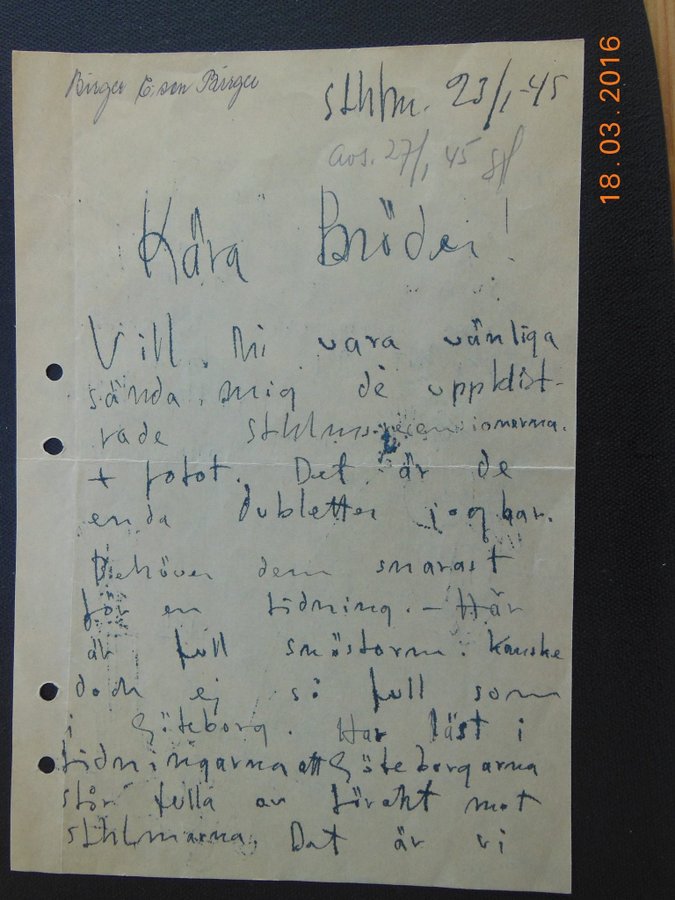 Birger E:son Birger
Sthlm. 23/1-45
18.03.2016
27/1 45
Kära Bröder!
Vill Ni vara vänliga
sända mig de uppklist-
rade Sthlmsrecensionerna.
+ fotot. Det är de
enda dubletter jag har.
Behöver dem snarast
för en tidning. – Här
är full snöstorm. Kanske
dock ej så full som
i Göteborg. Har läst i
tidningarna att Göteborgarna
står fulla av förakt mot
sthlmarna. Det är vi